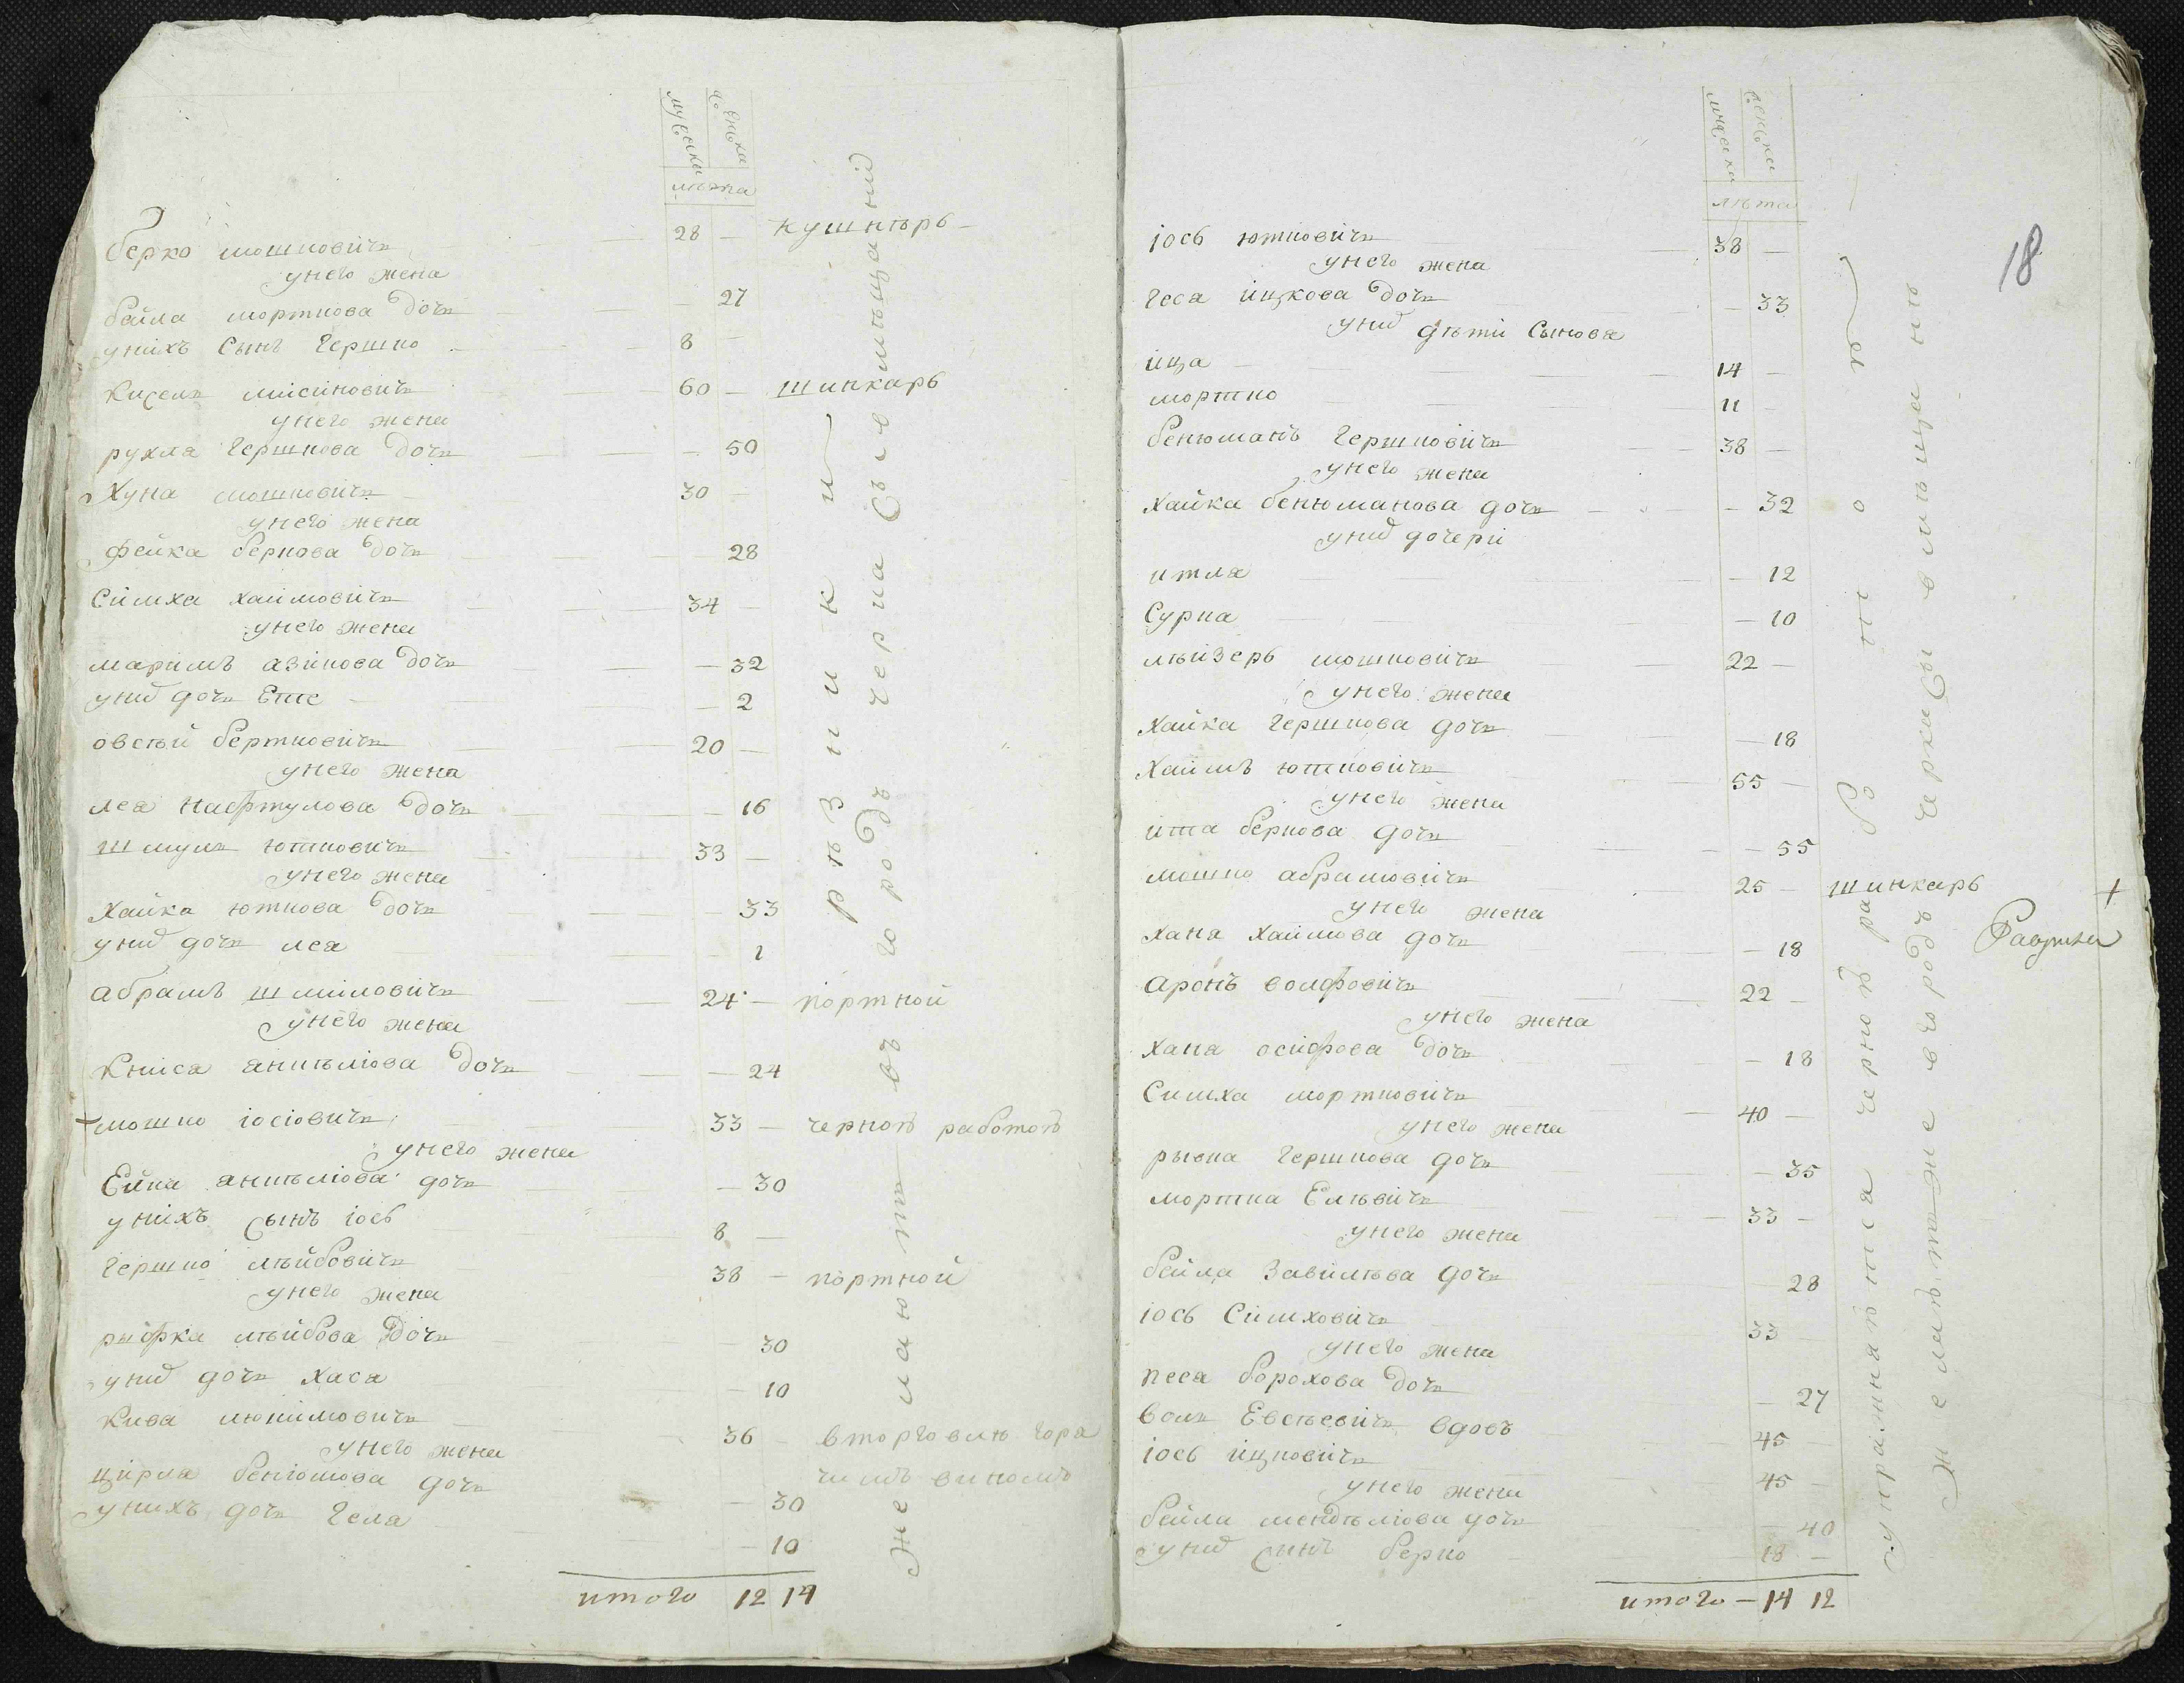 мужска
женска
лѣта
берко мошковичъ 28 — кушнѣрь
у него жена
бейла морткова дочь — 27
у нихъ сынъ гершко 8 —
кисель мисиновичъ 60 — шинкарь
у него жена
рухля гершкова дочь — 50
хуна мошковичъ 30 —
у него жена
фейка беркова дочь — 28
симха хаимовичъ 34 —
у него жена
маримъ азикова дочь — 32
у ни дочь Етте — 2
овсѣй берковичъ 20 —
у него жена
лея нафтулова дочь — 16
шмуль ютковичъ 33 —
у него жена
хайка юткова дочь — 33
у ни дочь лея — 1
абрамъ шлиомовичъ 24 — портной
у него жена
книса аншѣлiова дочь — 24
+ мошко iосiовичъ 33 — черноѣ работоѣ
у него жена
Ейка аншѣлiова дочь — 30
у нихъ сынъ iось 8 —
гершко лѣйбовичъ 38 — портной
у него жена
рыфка лѣйбова дочь — 30
у ни дочь хася — 10
кива 36 — в торговлю горя
у него жена
чимъ виномъ
цирля бенiомова дочь — 30
у нихъ дочь геля — 10
итого 12 14
рѣзники
желаютъ въ городъ черкасы в мѣщаній
18
мужска
женска
лѣта
iось ютковичъ 38 —
у него жена
геся ицкова дочь — 33
у ни дѣти сынова
ица 14 —
мортко 11 —
бенюманъ гершковичъ 38 —
у него жена
хайка бенюманова дочь — 32
у ни дочери
итля — 12
сурка — 10
лѣйзерь мошковичъ 22 —
у него жена
хайка гершкова дочь — 18
хаимъ ютковичъ 55 —
у него жена
ита беркова дочь — 55
мошко абрамовичъ 25 — шинкарь +
у него жена
хана хаимова дочь — 18
аронъ волфовичъ 22 —
у него жена
хана осифова дочь — 18
симха мортковичъ 40 —
у него жена
рывка гершкова дочь — 35
мортка Елѣвичъ 33 —
у него жена
бейла завилѣва дочь — 28
iось симховичъ 33
у него жена
песя борохова дочь — 27
воль Евсѣевичъ вдовъ 45
iось ицковичъ 45 —
у него жена
бейля мендѣлiова дочь — 40
у ни сынъ берко 18 —
итого — 14 12
упражняются черноѣ работоѣ
желаютъ же в городъ черкасы в мѣщанѣ